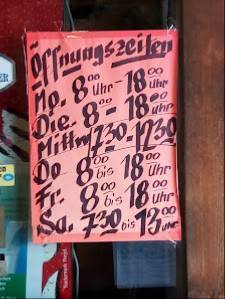 Öffnungszeiten
Mo. 8⁰⁰ Uhr - 18⁰⁰ Uhr
Die. 8⁰⁰ - 18⁰⁰ Uhr
Mittw 7³⁰ - 12³⁰
Do 8⁰⁰ bis 18⁰⁰ Uhr
Fr. 8⁰⁰ bis 18⁰⁰ Uhr
Sa. 7³⁰ bis 13⁰⁰ Uhr